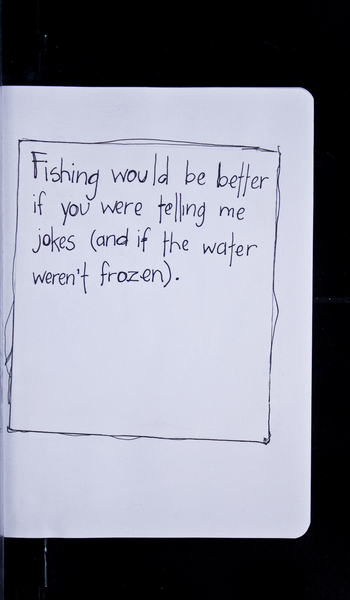 Fishing would be better
if you were telling me
jokes (and if the water
weren't frozen).